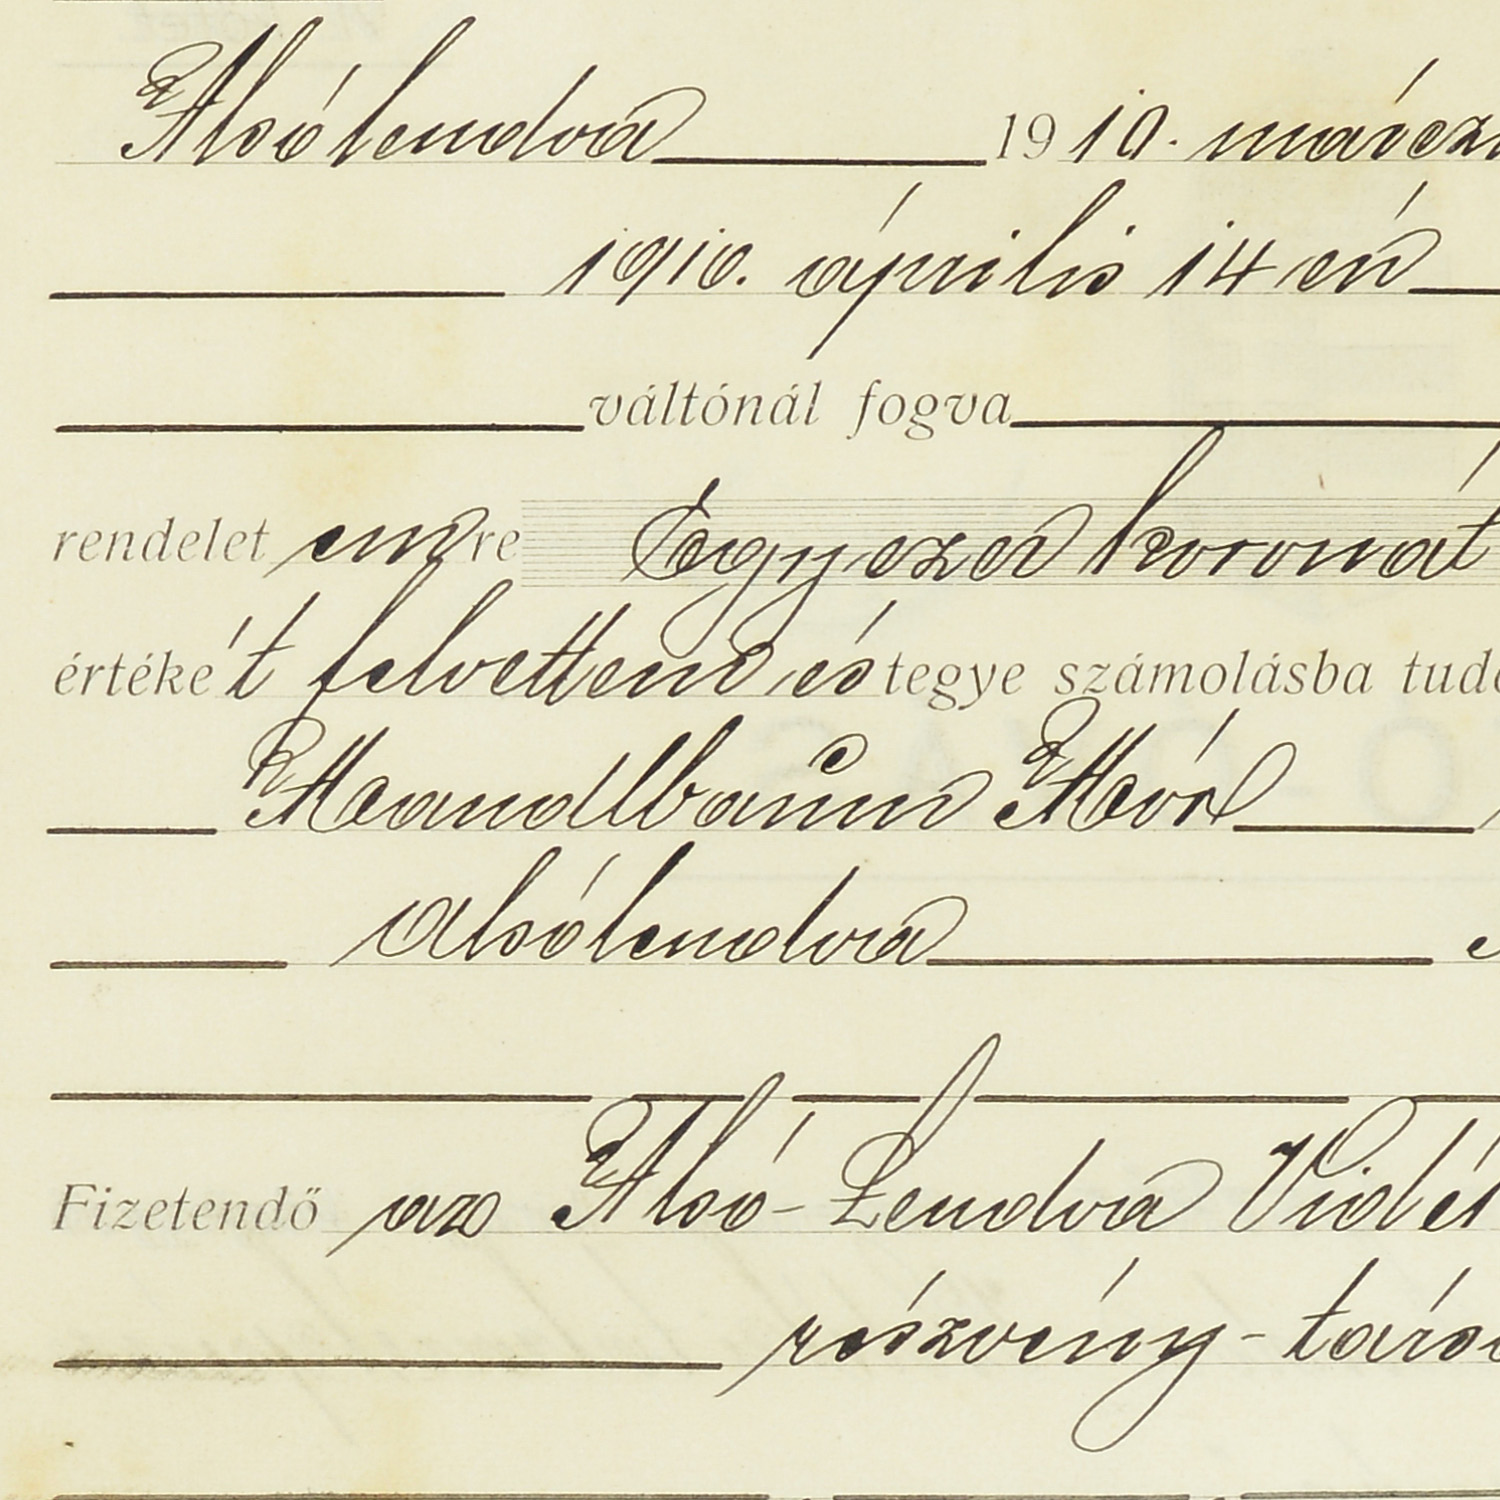 Alsólendva 1910. márczi
1910. április 14 én
váltónál fogva
rendelet emre Egyezer koronát
értékét felvettem és tegye számolásba tudó
Mandlbaum Mór
Alsólendva
Fizetendő az Alsó-Lendva Vidék
részvény-társ